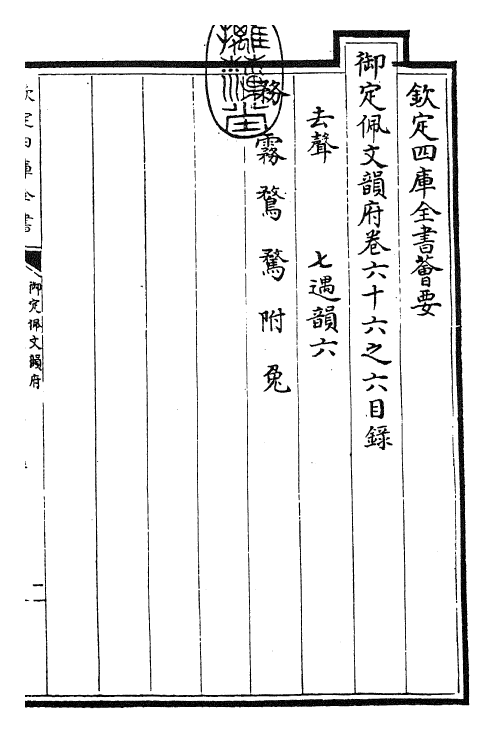 欽定四庫全書薈要
御定佩文韻府卷六十六之六目錄
去聲 七遇韻六
務 霧 鶩 騖 附 兔
欽定四庫全書
御定佩文韻府
二